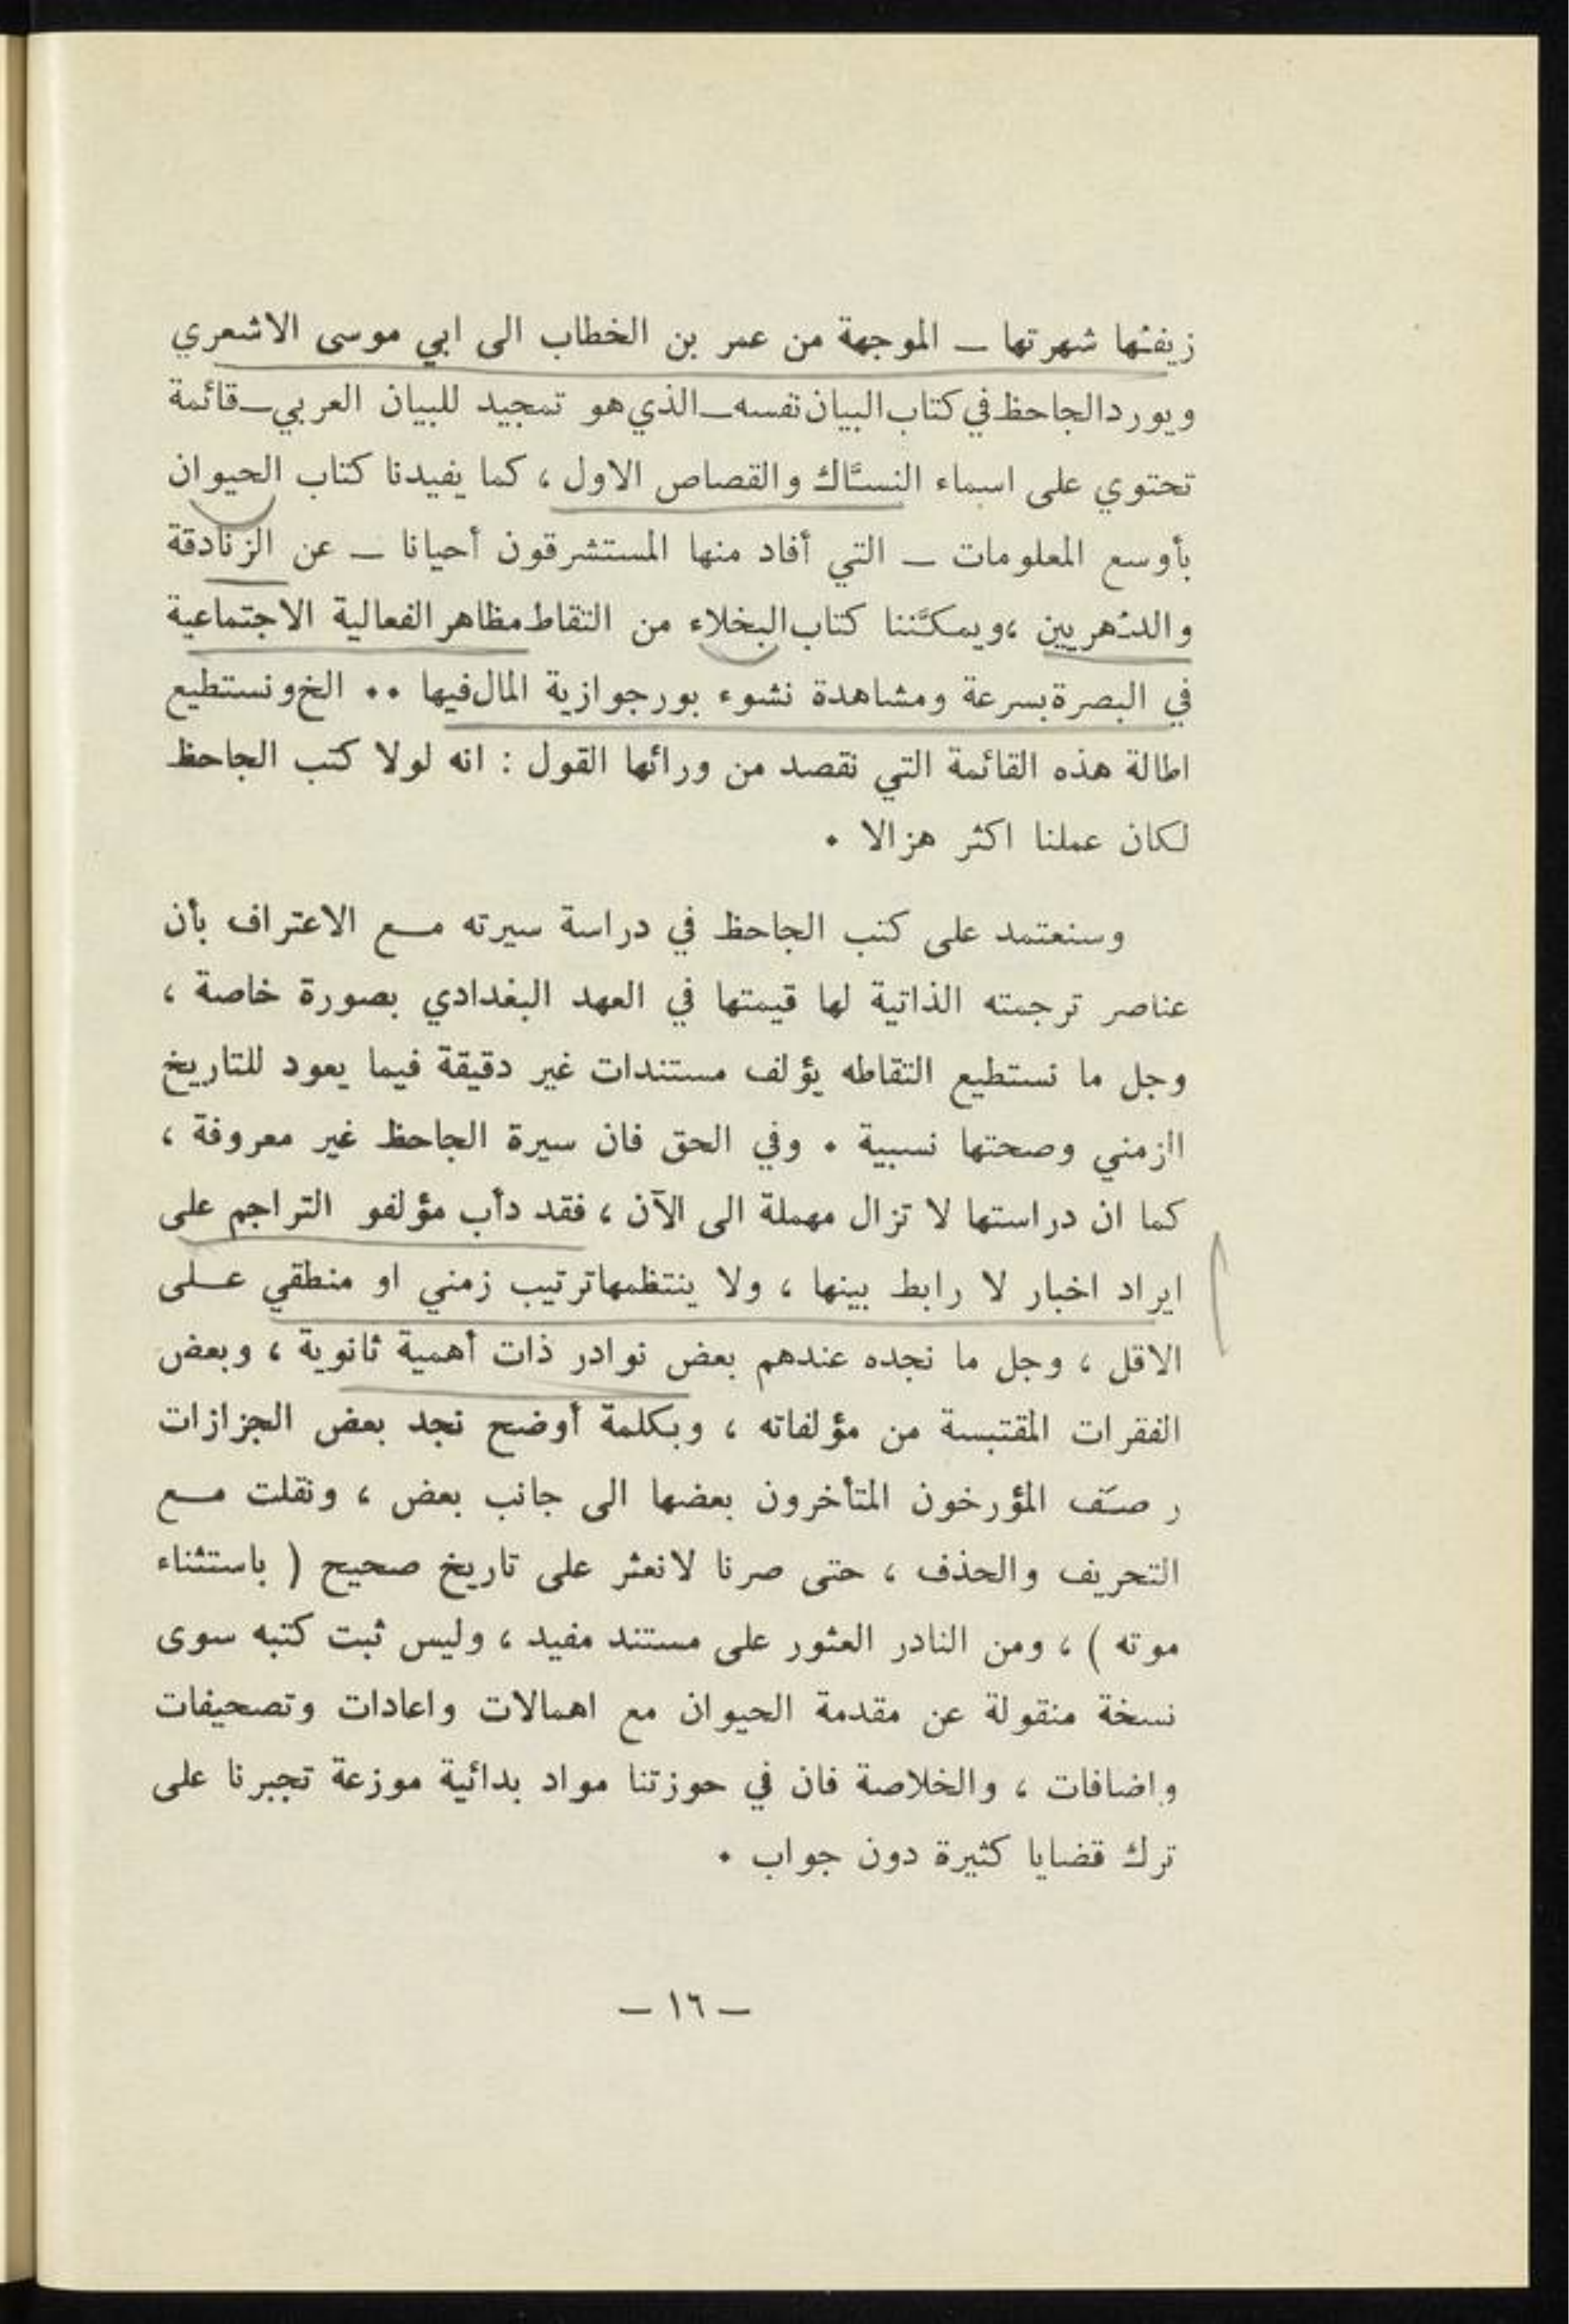 زيفتها شهرتها — الموجهة من عمر بن الخطاب الى ابي موسى الاشعري
ويورد الجاحظ في كتاب البيان نفسه — الذي هو تمجيد للبيان العربي — قائمة
تحتوي على اسماء النسّاك والقصاص الاول ، كما يفيدنا كتاب الحيوان
بأوسع المعلومات — التي أفاد منها المستشرقون أحيانا — عن الزنادقة
والدّهريين ، ويمكّننا كتاب البخلاء من التقاط مظاهر الفعالية الاجتماعية
في البصرة بسرعة ومشاهدة نشوء بورجوازية المال فيها .. الخ ونستطيع
اطالة هذه القائمة التي نقصد من ورائها القول : انه لولا كتب الجاحظ
لكان عملنا اكثر هزالا .
وسنعتمد على كتب الجاحظ في دراسة سيرته مع الاعتراف بأن
عناصر ترجمته الذاتية لها قيمتها في العهد البغدادي بصورة خاصة ،
وجل ما نستطيع التقاطه يؤلف مستندات غير دقيقة فيما يعود للتاريخ
الزمني وصحتها نسبية . وفي الحق فان سيرة الجاحظ غير معروفة ،
كما ان دراستها لا تزال مهملة الى الآن ، فقد دأب مؤلفو التراجم على
ايراد اخبار لا رابط بينها ، ولا ينتظمها ترتيب زمني او منطقي على
الاقل ، وجل ما نجده عندهم بعض نوادر ذات أهمية ثانوية ، وبعض
الفقرات المقتبسة من مؤلفاته ، وبكلمة أوضح نجد بعض الجزازات
رصّف المؤرخون المتأخرون بعضها الى جانب بعض ، ونقلت مع
التحريف والحذف ، حتى صرنا لا نعثر على تاريخ صحيح ( باستثناء
موته ) ، ومن النادر العثور على مستند مفيد ، وليس ثبت كتبه سوى
نسخة منقولة عن مقدمة الحيوان مع اهمالات واعادات وتصحيفات
واضافات ، والخلاصة فان في حوزتنا مواد بدائية موزعة تجبرنا على
ترك قضايا كثيرة دون جواب .
— ١٦ —